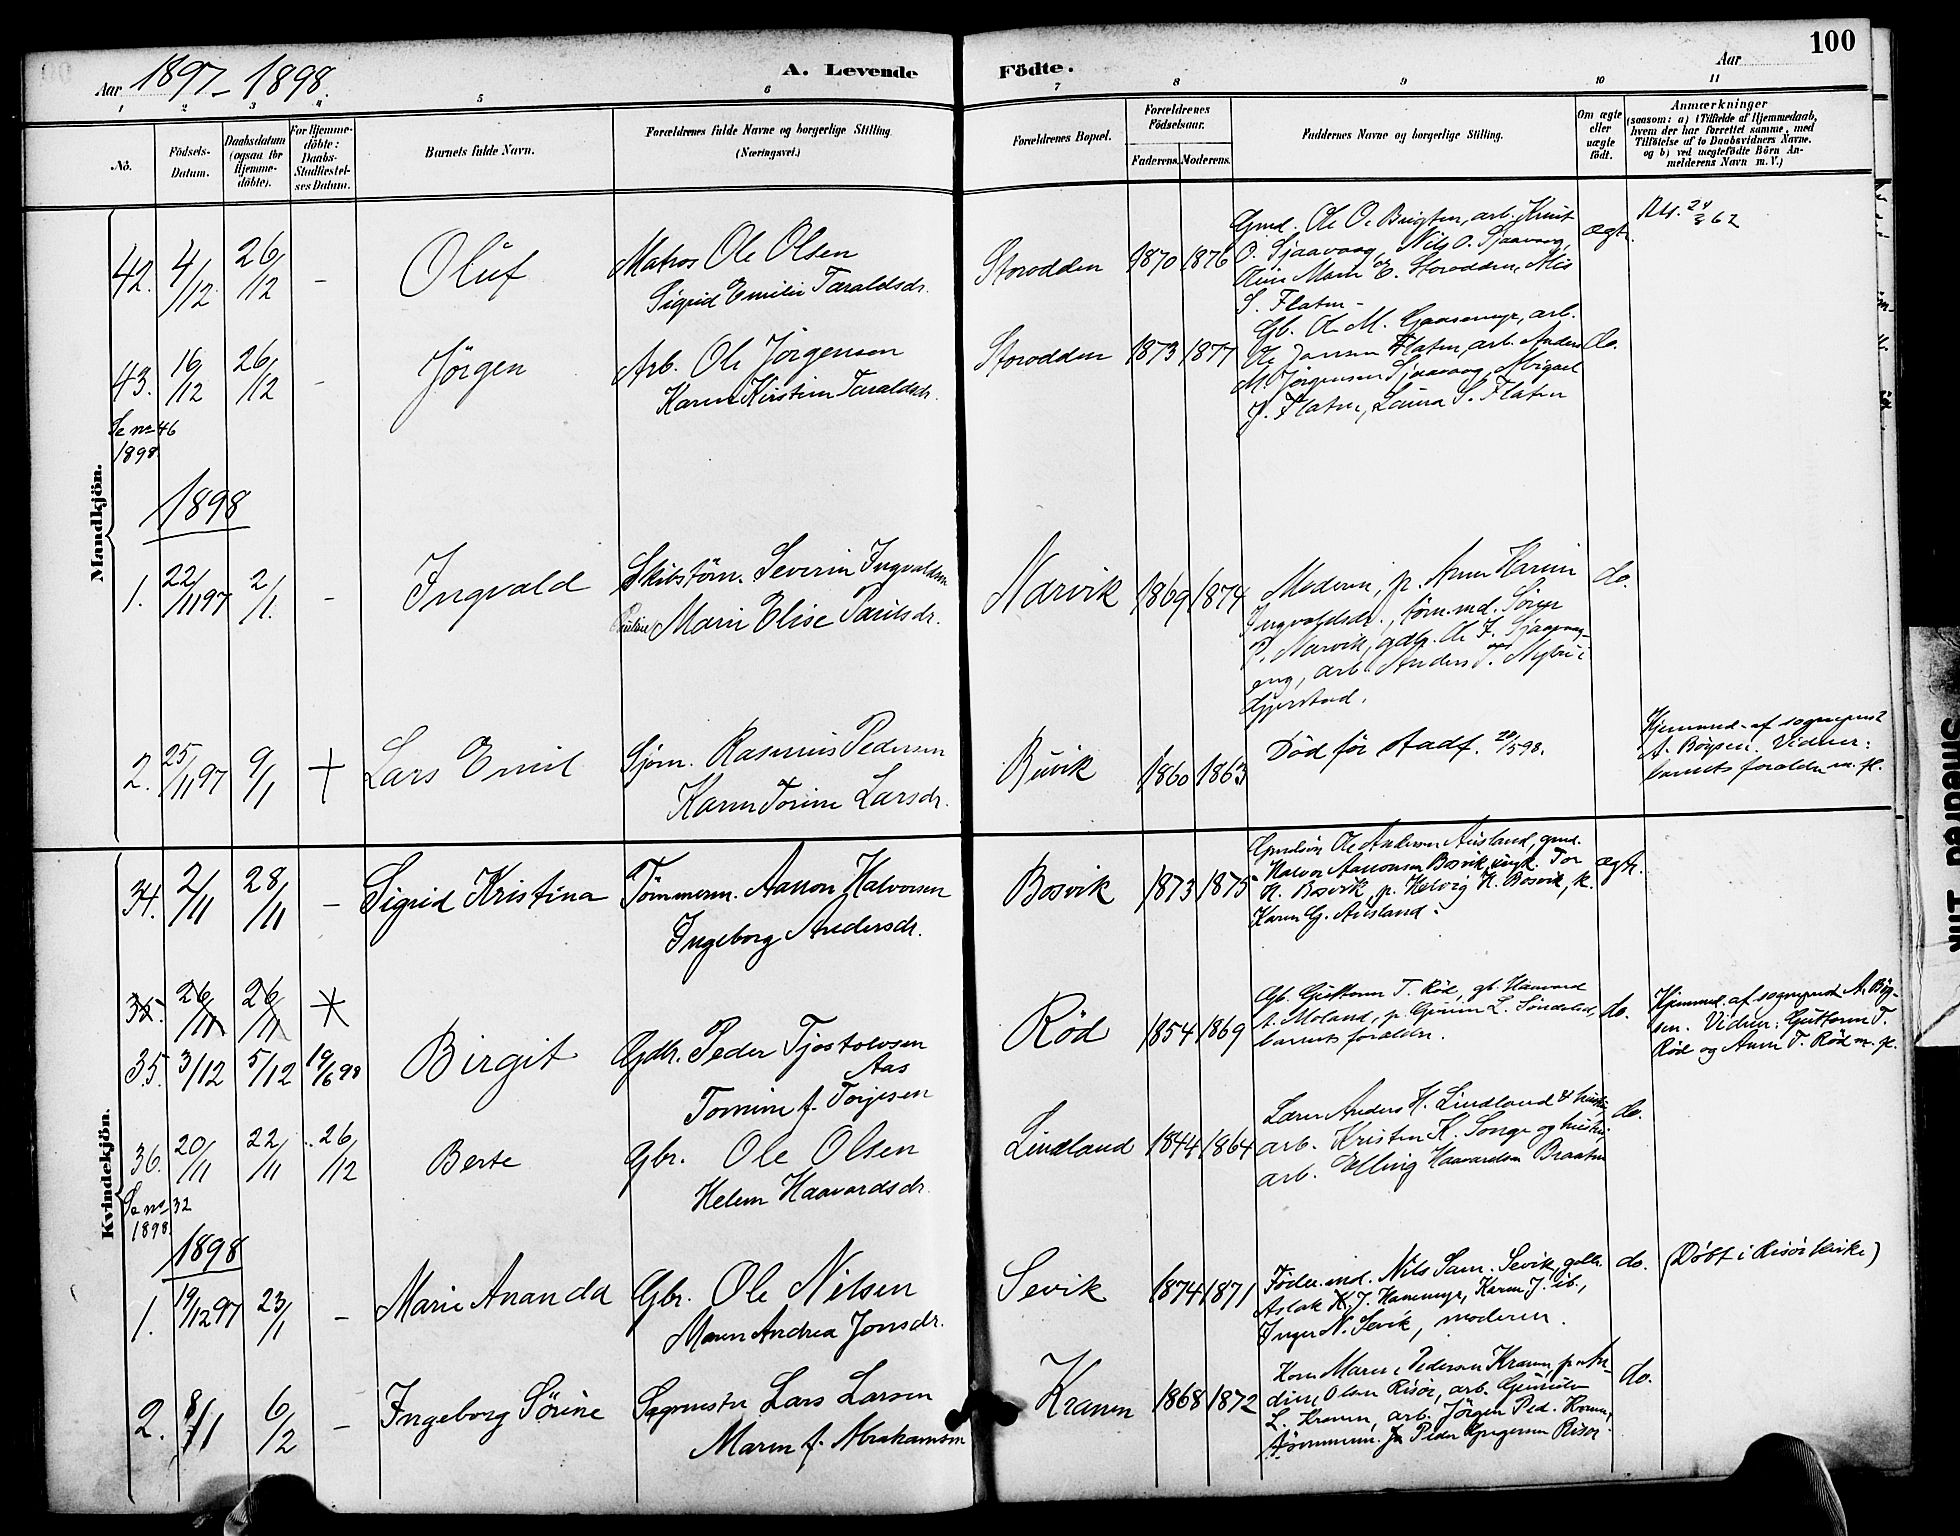 100
Aar 1897-1898. A. Levende Födte. Aar
1 2 3 4 5 6 7 8 9 10 11
No.
Födsels-
Datum.
Daabsdatum
(ogsaa for
Hjemme-
döbte).
For Hjemme-
döbte:
Daabs-
Stadfæstel-
ses Datum.
Barnets fulde Navn.
Forældrenes fulde Navne og borgerlige Stilling.
(Næringsvei.)
Forældrenes Bopæl.
Forældrenes
Födselsaar.
Faderens. Moderens.
Faddernes Navne og borgerlige Stilling.
Om ægte
eller
uægte
födt.
Anmærkninger
(saasom: a) i Tilfælde af Hjemmedaab,
hvem der har forrettet samme, med
Tilföielse af to Daabsvidners Navne,
og b) ved uægtefödte Börn An-
melderens Navn m. V.)
Mandkjön.
42. 4/12 26/12 - Oluf
Matros Ole Olsen
Sigrid Emilie Taraldsdr.
Storodden 1870 1876
Gmd. Ole O. arb. Knut
O. Sjaavaag, Nils O. Sjaavaag,
Marie E. Storodden,
S. Flaten -
ægte.
43. 16/12 26/12 - Jörgen
Arb. Ole Jörgensen
Karen Kirstine Taraldsdr.
Storodden 1873 1877
Gb. Ole M. arb.
Ole Jansen Flaten, arb. Anders
M. Jörgensen Sjaavaag, Abigael
J. Flaten, Laura S. Flaten
do.
Se no 46
1898.
1898
1. 22/11 97 2/1. - Ingvald
Skibstöm. Severin Ingvaldsen
Marie Elise Paulsdr.
Narvik 1869 1874
Moderen, p. Anne Karine
Ingvaldsdr., töm.md. Sören
P. Narvik, gdb. Ole F. Sjaavaag-
eng, arb. Anders T. Nybu i
Gjerstad.
do.
2. 25/11 97 9/1 + Lars Emil
Sjöm. Rasmus Pedersen
Karen Torine Larsdr.
Buvik 1860 1863
Död för stadf. 20/5 98.
Hjemmed. af sogneprest
A. Böysen. Vidner:
barnets forældre m. fl.
Kvindekjön.
34. 2/11 28/11 - Sigrid Kristina
Tömmerm. Aanon Halvorsen
Ingeborg Andersdr.
Bosvik 1873 1875
Gmdsön Ole Andersen Ausland, gmd.
Halvor Aanonsen Bosvik, ungk. Tor
H. Bosvik, p. Helvig H. Bosvik, k.
Karen G. Ausland.
ægte.
35. 26/11 26/11
35. 3/12 5/12 19/6 98 Birgit
Gdbr. Peder Tjostolvsen
Aas
Tomine f. Torjesen
Röd 1854 1869
Gb. Guttorm T. Röd, gb. Haavard
A. Moland, p. Gunne L. Söndeled,
barnets forældre.
do.
Hjemmed. af sogneprest A. Böy-
sen. Vidner: Guttorm T.
Röd og Anne T. Röd m. fl.
36. 20/11 22/11 26/12 Berte
Gbr. Ole Olsen
Helene Haavardsdr.
Lindland 1844 1864
Lærer Anders H. Lindland & hustru,
arb. Kristen K. Songe og hustru,
arb. Elling Haavardsen Braaten
do.
Se no 32
1898.
1898
1. 19/12 97 23/1 - Marie Ananda
Gbr. Ole Nilsen
Maren Andrea Jonsdr.
Sevik 1874 1871
Föder.md. Nils Sam. Sevik, gdbr.
Aslak K. J. Karen J. ib.,
Inger N. Sevik, moderen.
do. (Döbt i Risör kirke)
2. 8/1 6/2 - Ingeborg Sörine
Sagmester Lars Larsen
Maren f. Abrahamsen
Kranen 1868 1872
Kone Maren Pedersen Kranen, p. An-
dine Olsen Risör, arb. Gunulv
L. Kranen, arb. Jörgen Ped. Kranen,
tömmerm. Peder Gregersen Risör.
do.